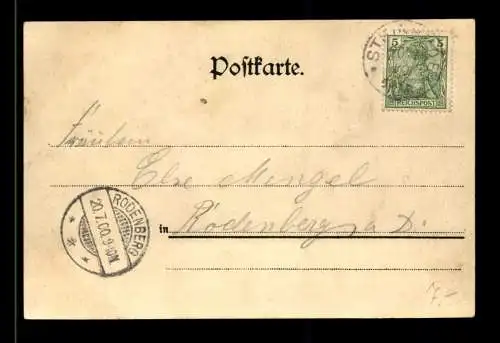 Postkarte.
ST
5 5
REICHSPOST
Fräulein
Else Mengel
in Rodenberg a D.
RODENBERG
20.7.00.9-10N.
7,-